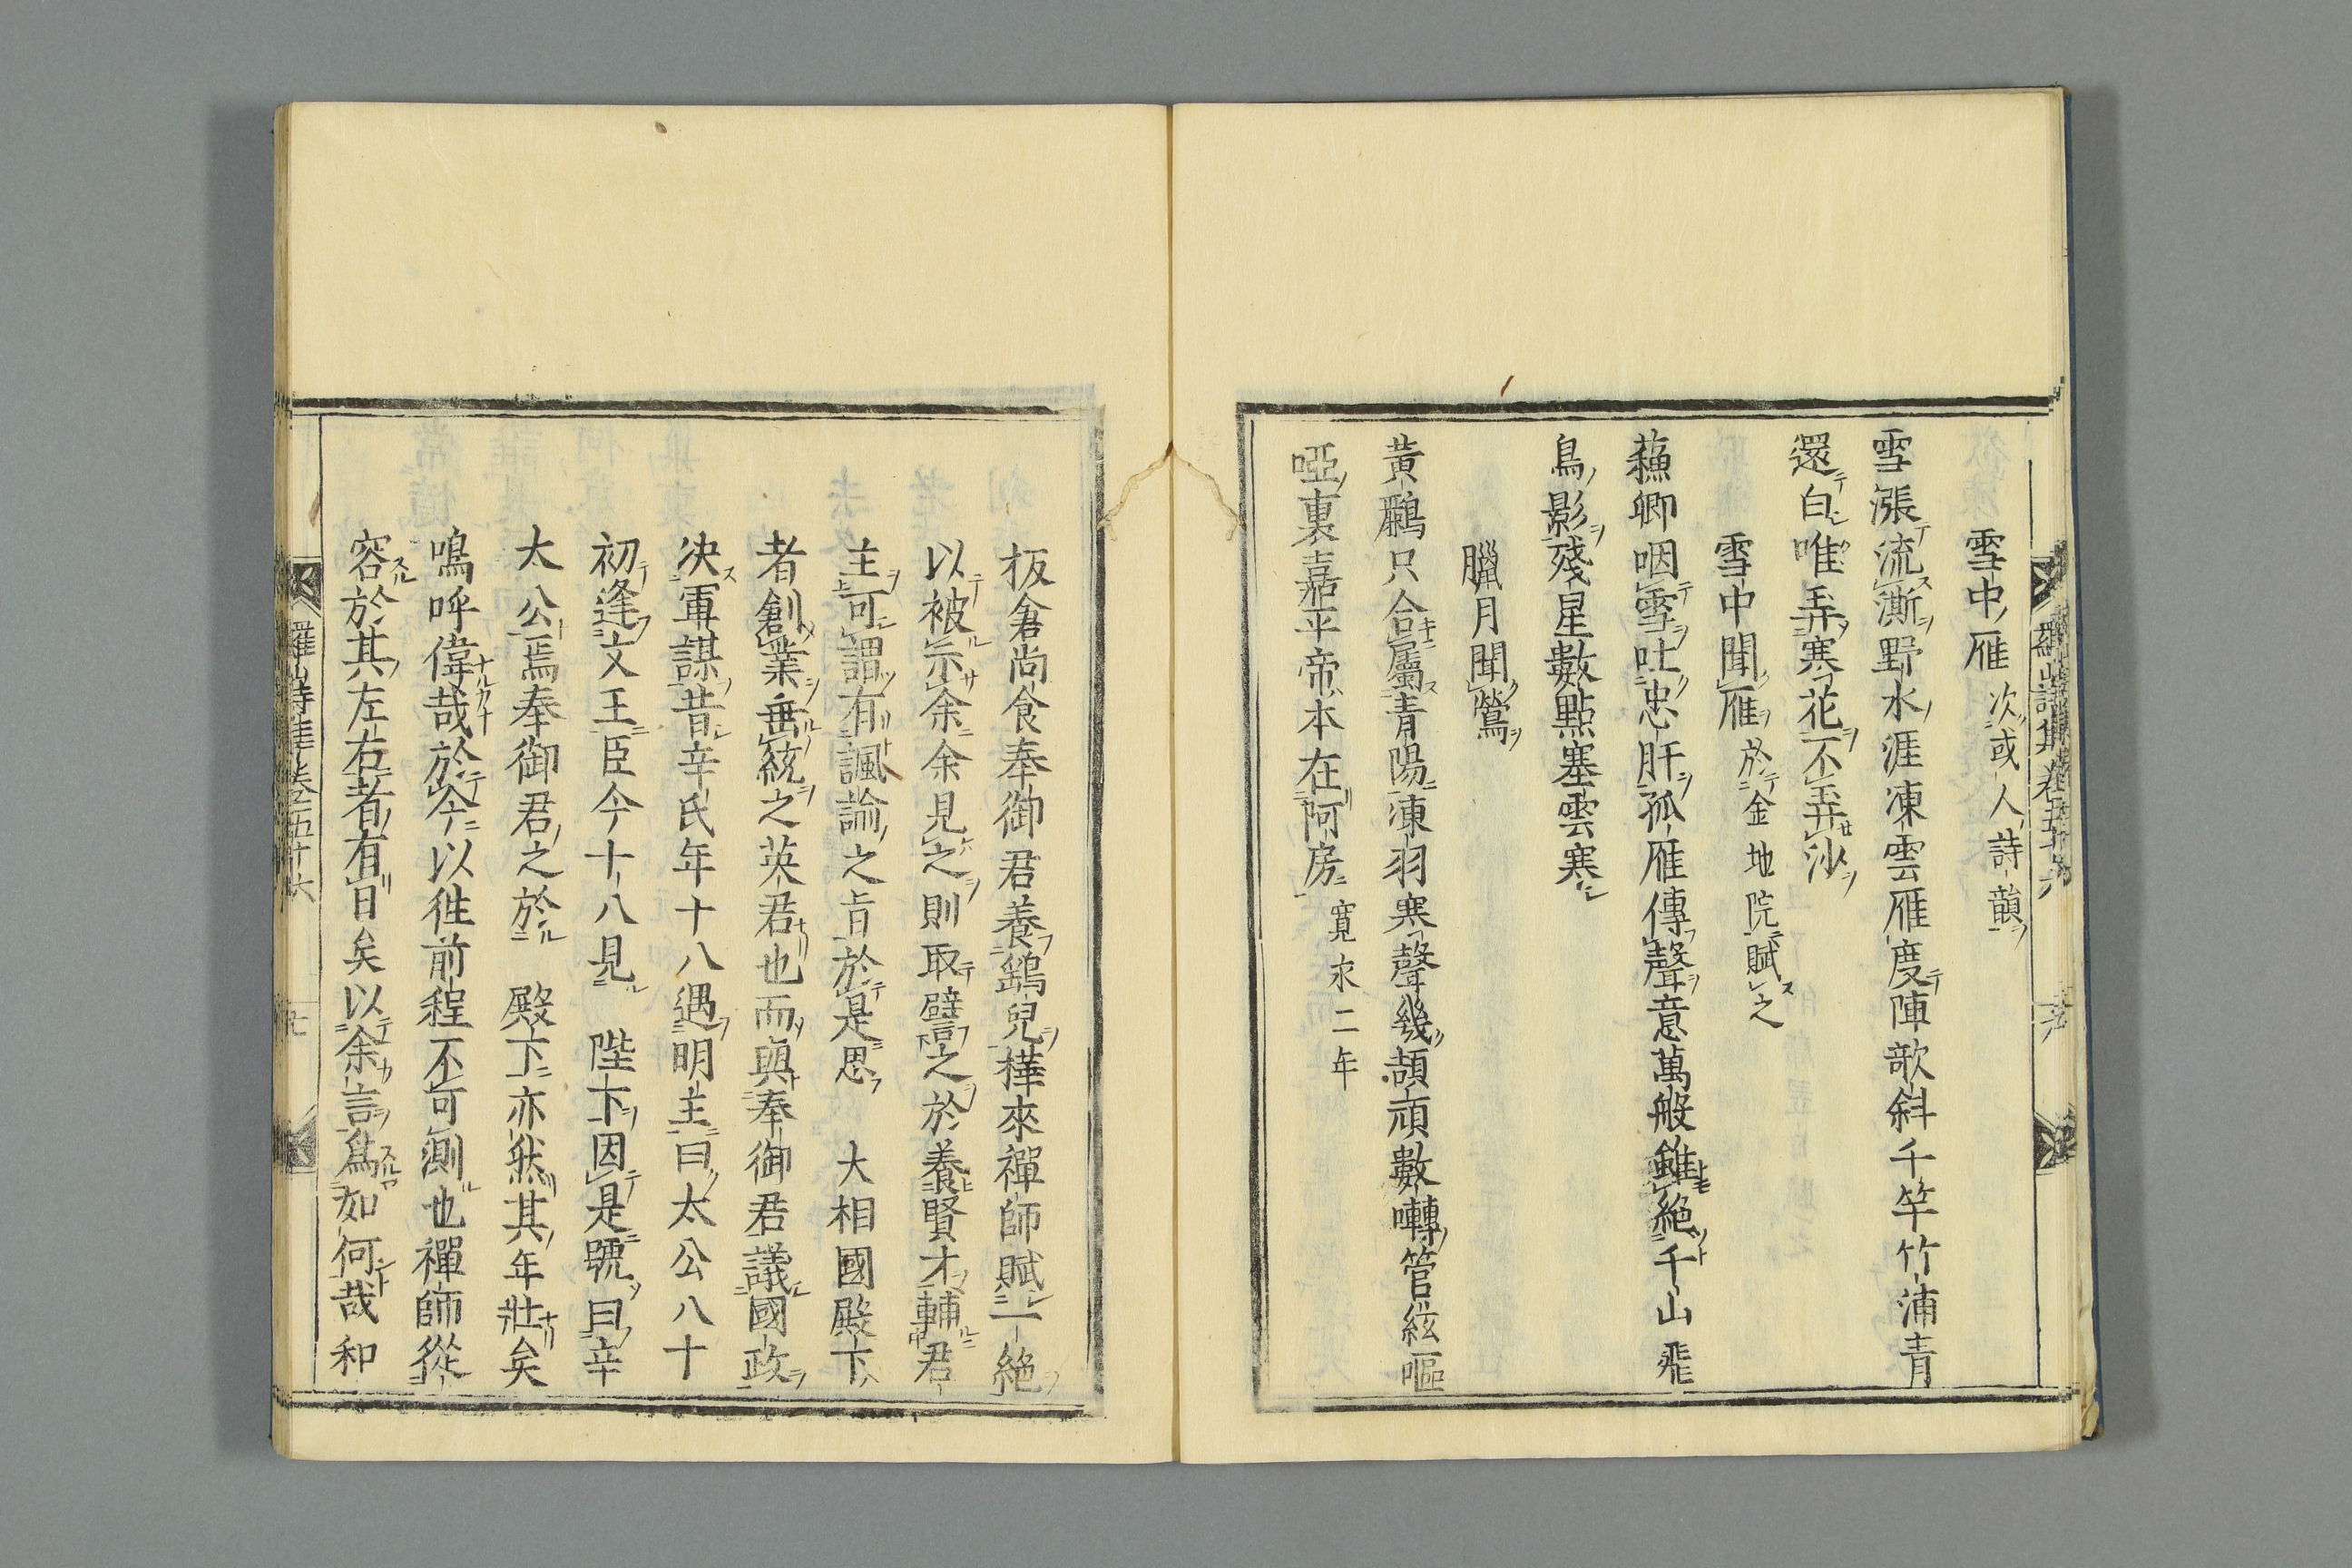 雪中雁 次或人詩韻
雪漲流澌野水涯凍雲雁度陣欹斜千竿竹浦青
還白唯弄寒花不弄沙
雪中聞雁 於金地院賦之
蘓卿咽雪吐忠肝孤雁傳聲意萬般雖絶千山飛
鳥影殘星數點塞雲寒
臘月聞鶯
黃鸝只合屬青陽凍羽寒聲幾頡頏數囀管絃嘔
啞裏嘉平帝本在阿房 寛永二年
板倉尚食奉御君養鷂兒樺來禪師賦一絶
以被示余余見之則取譬之於養賢才輔君
主可謂有諷諭之旨於是思 大相國殿下
者創業垂統之英君也而與奉御君議國政
决軍謀昔辛氏年十八遇明主曰太公八十
初逢文王臣今十八見 陛下因是號曰辛
太公焉奉御君之於 殿下亦然其年壯矣
嗚呼偉哉於今以徃前程不可測也禪師從
容於其左右者有日矣以余言爲如何哉和
羅山詩集卷五十六